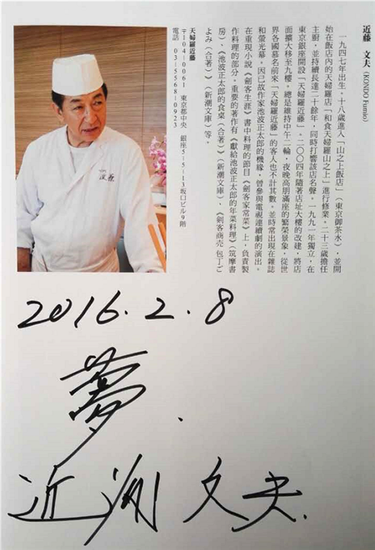 近藤 文夫 (KONDO Fumio)
一九四七年出生,十八歲進入「山之上飯店」(東京御茶水),並開
始在飯店內的天婦羅店「和食天婦羅山之上」進行修業,二十三歲擔任
主廚,並持續長達二十餘年,同時打響該店名聲,一九九一年獨立,在
東京銀座開設「天婦羅近藤」,二〇〇四年隨著店址大樓的改建,將店
面擴大移至九樓,總是維持中午二輪、夜晚高朋滿座的繁榮景象,從世
界各國慕名前來「天婦羅近藤」的客人也不計其數,並時常出現在雜誌
和螢光幕,因已故作家池波正太郎的機緣,曾參與電視連續劇的演出,
在重現小說《劍客生涯》書中料理的節目《劍客家常菜》上,負責製
作料理的部分,重要的著作有《獻給池波正太郎的年菜料理》(筑摩書
房)、《池波正太郎的食桌(合著)》(新潮文庫)、《劍客商売 包丁ご
よみ(合著)》(新潮文庫)等。
天婦羅近藤
〒104-0061 東京都中央 銀座5-5-13坂口ビル9階
電話 03-5568-0923
2016.2.8
夢.
近藤文夫.